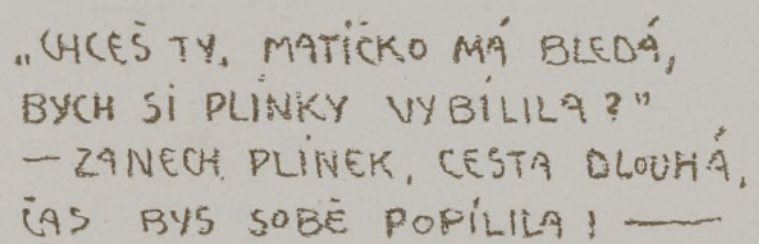 „CHCEŠ TY, MATIČKO MÁ BLEDÁ,
BYCH SI PLÍNKY VYBÍLILA?"
— ZANECH PLÍNEK, CESTA DLOUHÁ,
ČAS BYS SOBĚ POPÍLILA! —